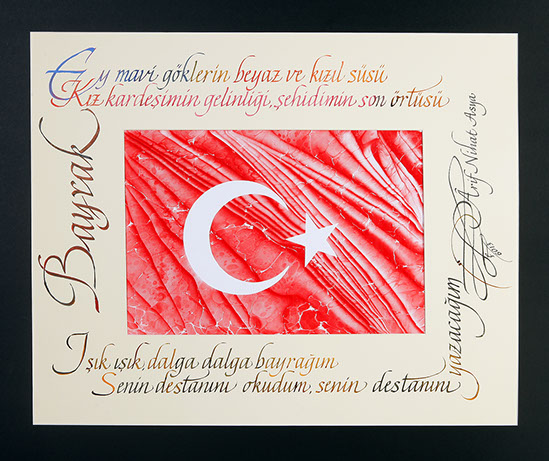 Bayrak
Ey mavi göklerin beyaz ve kızıl süsü
Kız kardeşimin gelinliği, şehidimin son örtüsü
Işık ışık, dalga dalga bayrağım
Senin destanını okudum, senin destanını
yazacağım
Arif Nihat Asya